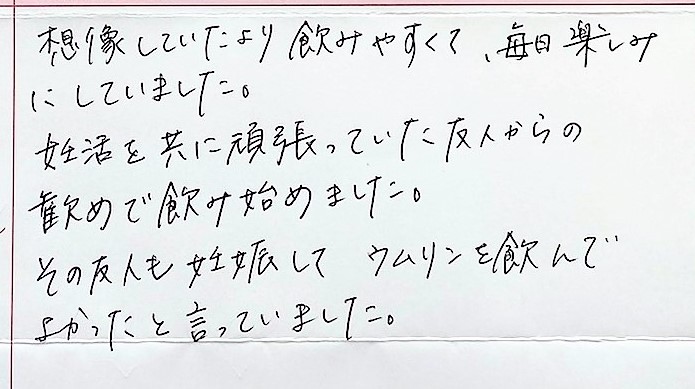 想像していたより飲みやすくて、毎日楽しみ
にしていました。
妊活を共に頑張っていた友人からの
歓めで飲み始めました。
その友人も妊娠して ウムリンを飲んで
よかったと言っていました。